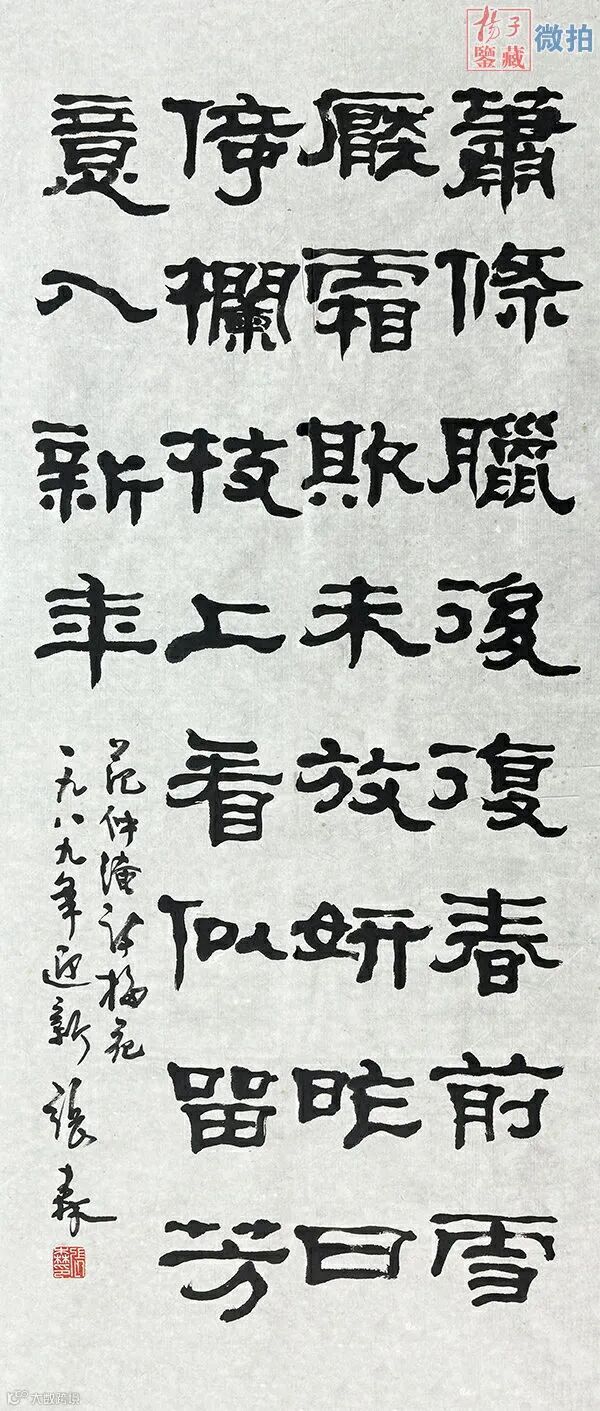 蕭條臘後復春前雪
厭霜欺未放妍昨日
倚欄枝上看似留芳
意入新年
范仲淹詩梅花
一九八九年迎新 張森
揚子鑒藏 微拍
大数跨境